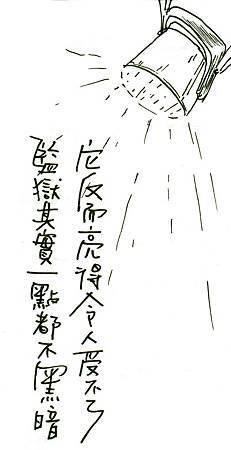 監獄其實一點都不黑暗
它反而亮得令人受不了